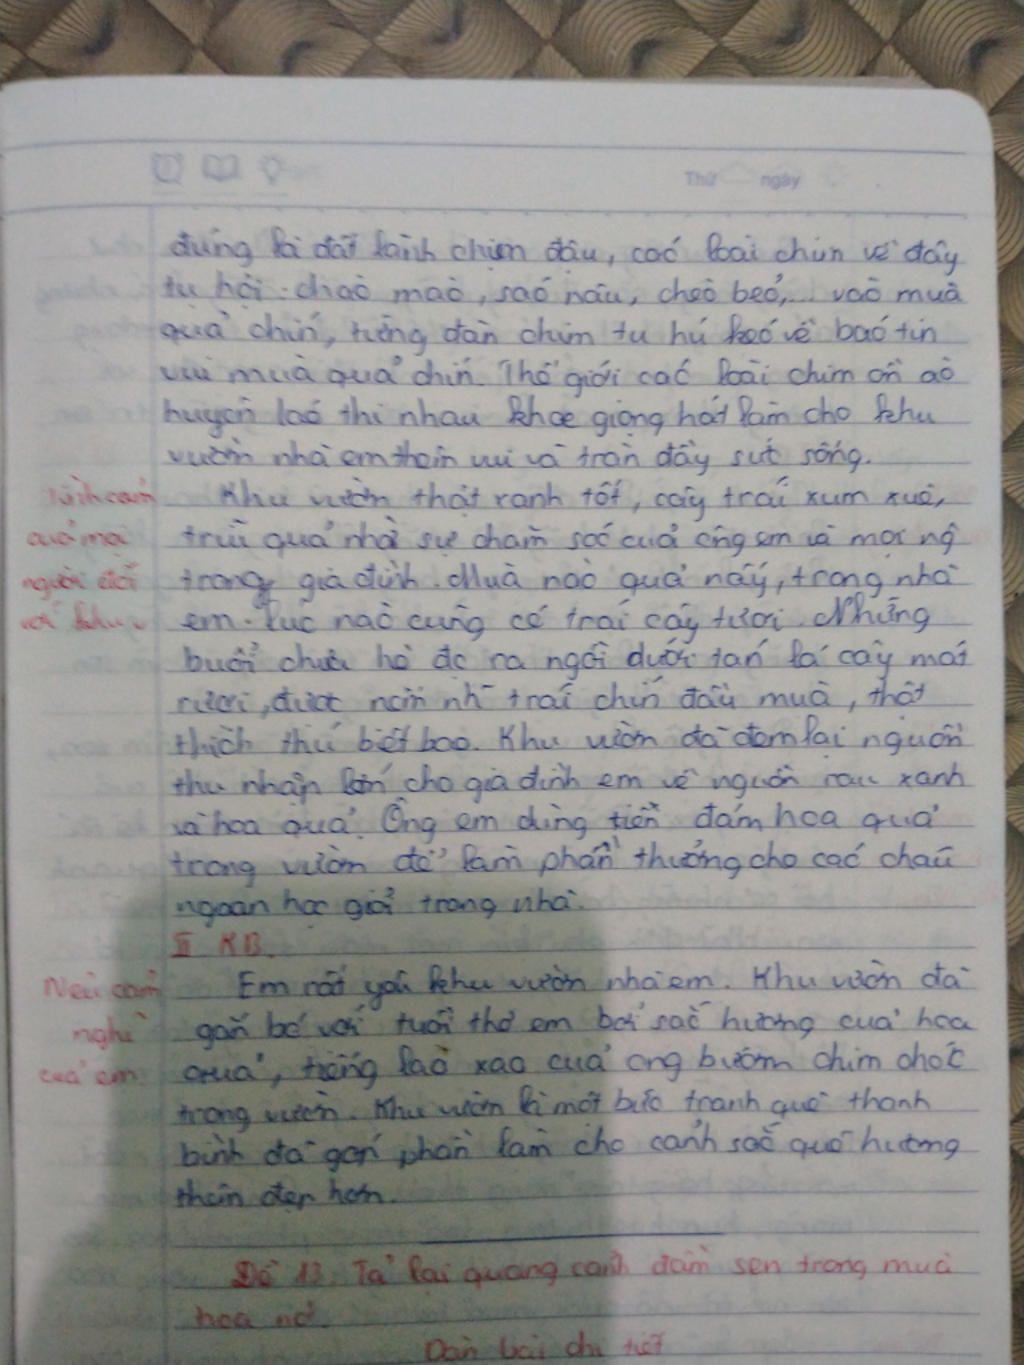 Thứ ngày
đúng là đất lành chim đậu, các loài chim về đây
tụ hội. chào mào, sáo nâu, chèo bẻo,... vào mùa
quả chín, tiếng đàn chim tu hú kéo về báo tin
vui mùa quả chín. Thế giới các loài chim ồn ào
huyên láo thi nhau khoe giọng hát làm cho khu
vườn nhà em thêm vui và tràn đầy sức sống.
Tình cảm
của mọi
người đối
với khu v
Khu vườn thật xanh tốt, cây trái xum xuê,
trĩu quả nhờ sự chăm sóc của ông em và mọi ng
trong gia đình. Mùa nào quả nấy, trong nhà
em. lúc nào cũng có trái cây tươi. Những
buổi chưa hè đc ra ngồi dưới tán lá cây mát
rượi, được nếm nh~ trái chín đầu mùa, thật
thích thú biết bao. Khu vườn đã đem lại nguồn
thu nhập lớn cho gia đình em về nguồn rau xanh
và hoa quả. Ông em dùng tiền đám hoa quả
trong vườn để làm phần thưởng cho các cháu
ngoan học giỏi trong nhà.
III KB.
Nêu cảm
nghĩ
của em
Em rất yêu khu vườn nhà em. Khu vườn đã
gắn bó với tuổi thơ em bởi sắc hương của hoa
quả, tiếng lao xao của ong bướm chim chóc
trong vườn. Khu vườn là một bức tranh quê thanh
bình đã góp phần làm cho cảnh sắc quê hương
thêm đẹp hơn.
Đề 13: Tả lại quang cảnh đầm sen trong mùa
hoa nở.
Dàn bài chi tiết